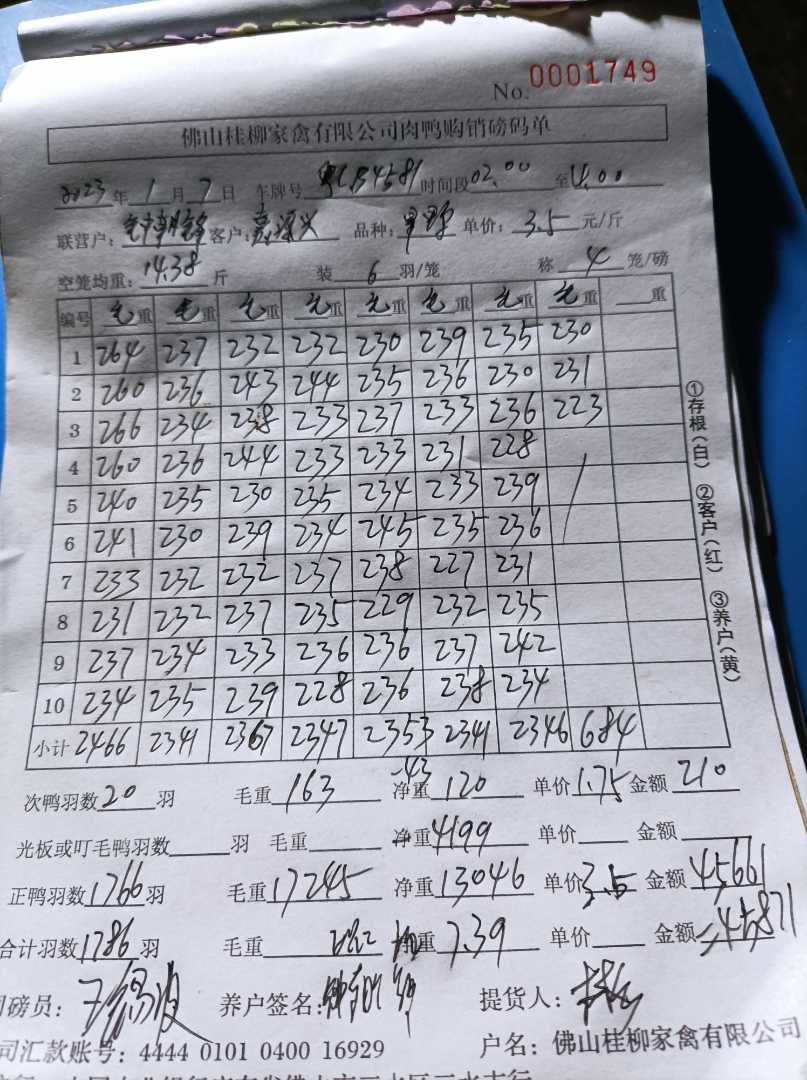 No. 0001749
佛山桂柳家禽有限公司肉鸭购销磅码单
2023年 1月 7日 车牌号 粤LB4581 时间段 02.00 至 4.00
联营户: 客户: 品种: 单价: 3.5 元/斤
空笼均重: 14.38 斤 装 6 羽/笼 称 4 笼/磅
编号 毛重 毛重 毛重 毛重 毛重 毛重 毛重 毛重 重
1 264 237 232 232 230 239 235 230
2 260 236 243 244 235 236 230 231
3 266 234 238 233 237 233 236 223
4 260 236 244 233 233 231 228
5 240 235 230 235 234 233 239
6 241 230 239 234 245 235 236
7 233 232 232 237 238 227 231
8 231 232 237 235 229 232 235
9 237 234 233 236 236 237 242
10 234 235 239 228 236 238 234
小计 2466 2341 2367 2347 2353 2341 2346 684
①存根(白) ②客户(红) ③养户(黄)
次鸭羽数 20 羽 毛重 163 -43 净重 120 单价 1.75 金额 210
光板或叮毛鸭羽数 羽 毛重 净重 4199 单价 金额
正鸭羽数 1766 羽 毛重 17245 净重 13046 单价 3.5 金额 45661
合计羽数 1786 羽 毛重 净重 7.39 单价 金额 45871
司磅员: 养户签名: 提货人:
司汇款账号: 4444 0101 0400 16929 户名: 佛山桂柳家禽有限公司